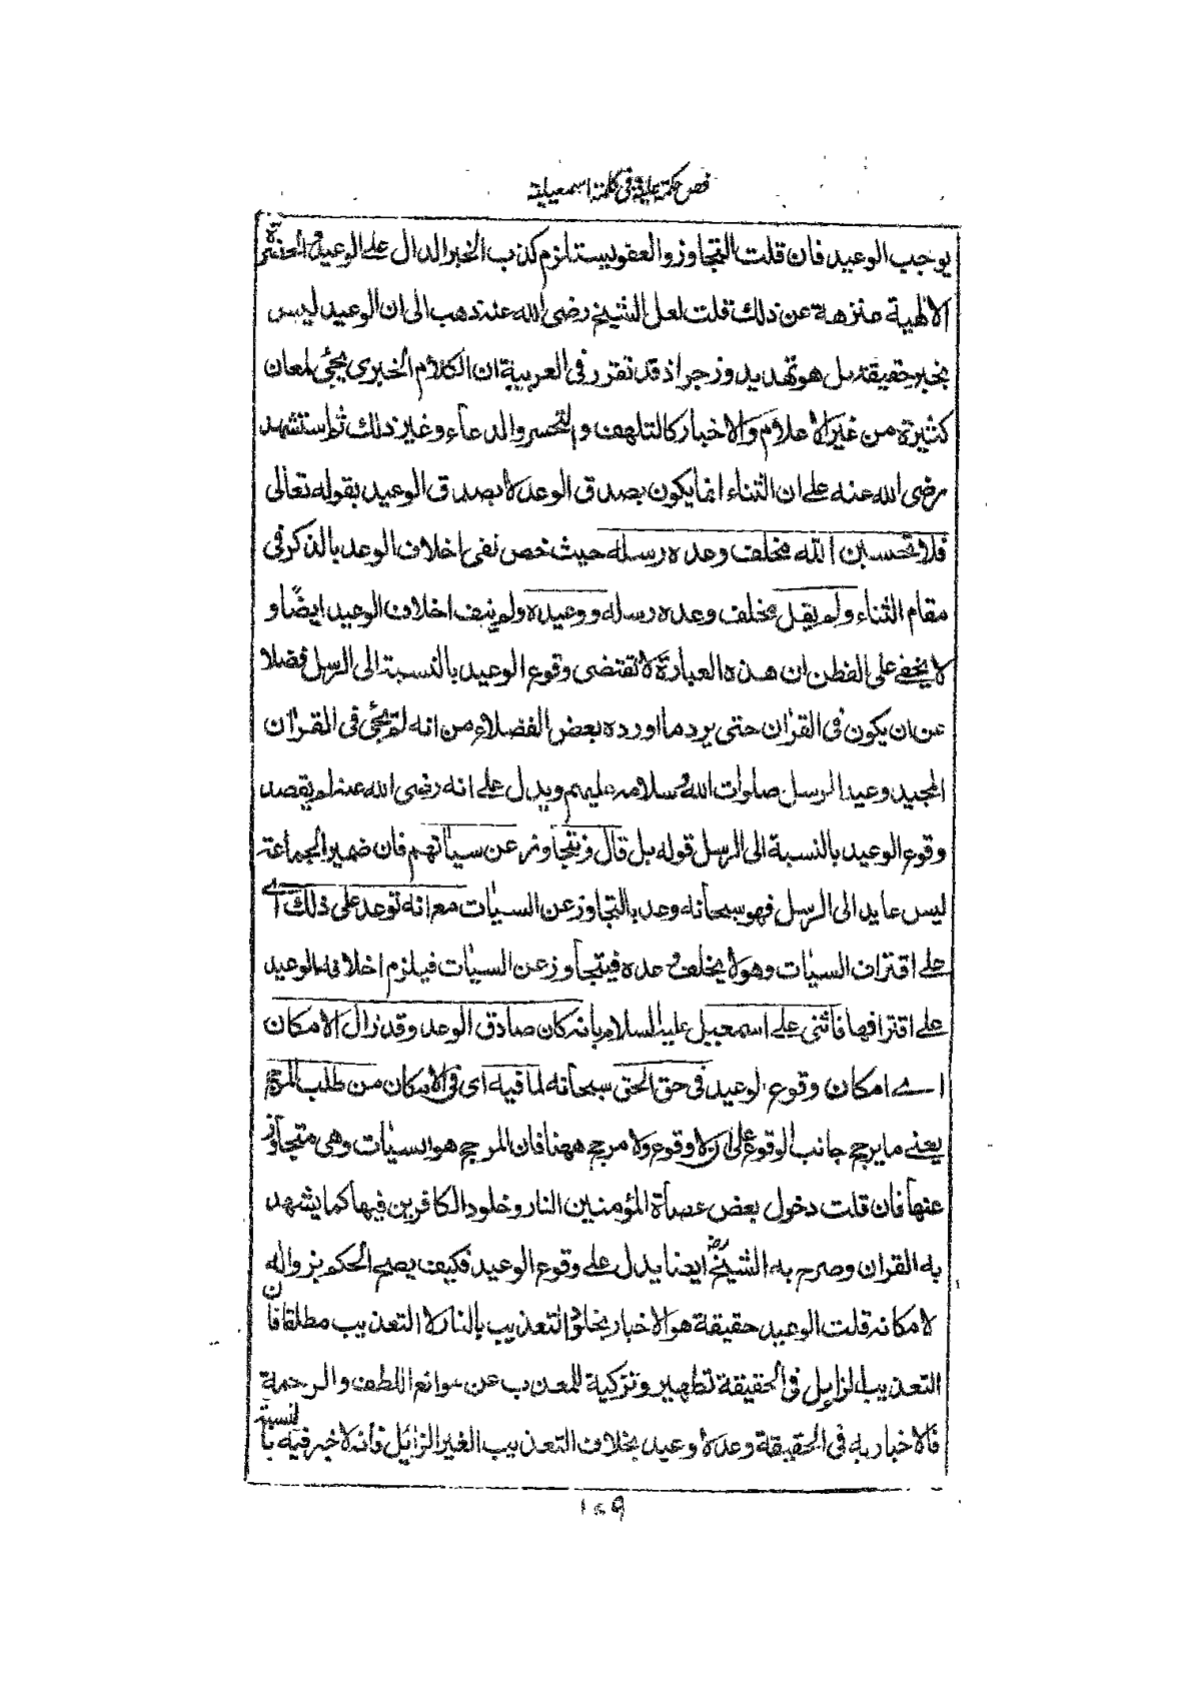 فص حكمة علية في كلمة اسمعيلية
يوجب الوعيد فان قلت التجاوز والعفو يستلزم كذب الخبر الدال على الوعيد والحضرة
الالهية منزهة عن ذلك قلت لعل الشيخ رضى الله عنه ذهب الى ان الوعيد ليس
بخبر حقيقة بل هو تهديد وزجر اذ قد تقرر فى العربية ان الكلام الخبرى يجئ لمعان
كثيرة من غير الاعلام والاخبار كالتلهف والتحسر والدعاء وغير ذلك ثم استشهد
رضى الله عنه على ان الثناء انما يكون بصدق الوعد لا بصدق الوعيد بقوله تعالى
فلا تحسبن الله مخلف وعده رسله حيث خص نفى اخلاف الوعد بالذكر فى
مقام الثناء ولم يقل مخلف وعده رسله ووعيده ولم ينف اخلاف الوعيد ايضًا و
لا يخفى على الفطن ان هذه العبارة لا تقتضى وقوع الوعيد بالنسبة الى الرسل فضلا
عن ان يكون فى القرٰان حتى يرد ما اورده بعض الفضلاء من انه لم يجئ فى القرٰان
المجيد وعيد الرسل صلوات الله وسلامه عليهم ويدل على انه رضى الله عنه لم يقصد
وقوع الوعيد بالنسبة الى الرسل قوله بل قال ونتجاوز عن سياٰتهم فان ضمير الجماعة
ليس عايد الى الرسل فهو سبحانه وعد بالتجاوز عن السياٰت مع انه توعد على ذلك اے
على اقتراف السياٰت وهو لا يخلف وعده فيتجاوز عن السياٰت فيلزم اخلافه الوعيد
على اقترافها فاثنى على اسمعيل عليه السلام بانه كان صادق الوعد وقد زال الامكان
اے امكان وقوع الوعيد فى حق الحق سبحانه لما فيه اى فى الامكان من طلب المرجح
يعنے ما يرجح جانب الوقوع على اللاوقوع ولا مرجح ههنا فان المرجح هو السياٰت وهى متجاوز
عنها فان قلت دخول بعض عصاة المؤمنين النار وخلود الكافرين فيها كما يشهد
به القران وصرح به الشيخ رض ايضا يدل على وقوع الوعيد فكيف يصح الحكم بزواله
لا مكانه قلت الوعيد حقيقة هو الاخبار بخلود التعذيب بالنار لا التعذيب مطلقا فان
التعذيب الزايل فى الحقيقة تطهير وتزكية للمعذب عن موانع اللطف والرحمة
فالاخبار به فى الحقيقة وعد لا وعيد بخلاف التعذيب الغير الزائل فانه لا خير فيه بالنسبة
١٥٩